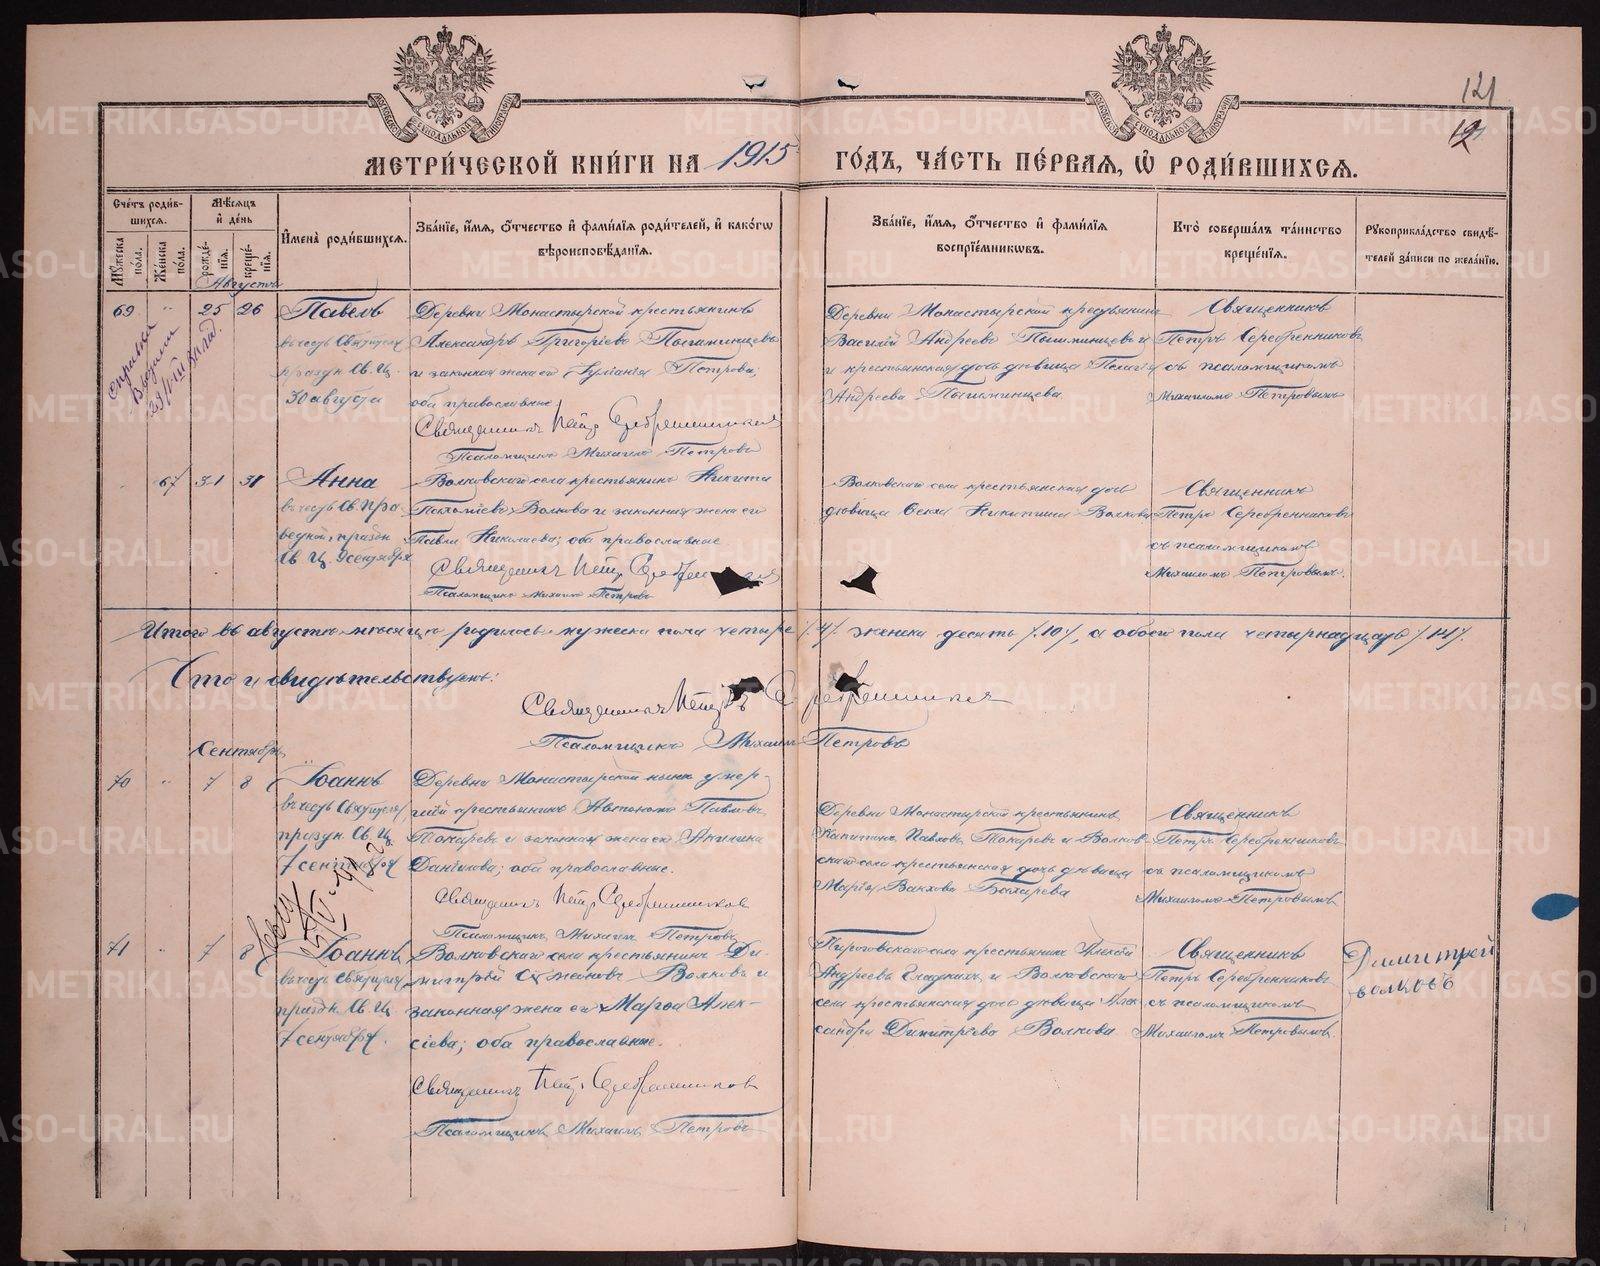 121
12
МОСКОВСКОЙ СѴНОДАЛЬНОЙ ТИПОГРАФІИ
МОСКОВСКОЙ СѴНОДАЛЬНОЙ ТИПОГРАФІИ
МЕТРИ́ЧЕСКОЙ КНИ́ГИ НА 1915 ГО́ДЪ, ЧА́СТЬ ПЕ́РВАЯ, Ѡ҆ РОДИ́ВШИХСЯ.
Сче́тъ роди́вшихся.
Му́жеска по́ла.
Же́нска по́ла.
Мѣ́сяцъ и҆ де́нь
рожде́нїя.
креще́нїя.
И҆мена̀ роди́вшихся.
Зва́нїе, и҆́мя, о҆́тчество и҆ фами́лїя роди́телей, и҆ како́гѡ вѣроисповѣ́данїя.
Зва́нїе, и҆́мя, о҆́тчество и҆ фами́лїя воспрїе́мникѡвъ.
Кто̀ соверша́лъ та́инство креще́нїя.
Рукоприкла́дство свидѣ́телей за́писи по жела́нїю.
Августъ
69 " 25 26
Павелъ
въ честь Святителя
праздн. Св. Ц.
30 августа
Деревни Монастырской крестьянинъ
Александръ Григоріевъ Пышминцевъ
и законная жена его Іуліанія Петрова;
оба православные
Священникъ Петр Серебренников
Псаломщикъ Михаилъ Петровъ
Деревни Монастырской крестьянинъ
Василій Андреевъ Пышминцевъ
и крестьянская дочь дѣвица Пелагія
Андреева Пышминцева.
Священникъ
Петръ Серебренниковъ
съ псаломщикомъ
Михаиломъ Петровымъ
67 31 31
Анна
въ честь Св. Пра
ведной, праздн.
Св. Ц. 9 сентября
Волковскаго села крестьянинъ Никита
Волковъ и законная жена его
Павла Николаева; оба православные
Священникъ Петр
Псаломщикъ Михаилъ Петровъ
Волковскаго села крестьянская дочь
дѣвица Никитина Волкова
Священникъ
Петръ Серебренниковъ
съ псаломщикомъ
Михаиломъ Петровымъ.
Итого въ августѣ мѣсяцѣ родилось мужеска пола четыре /4/ женска десять /10/, а обоего пола четырнадцать /14/.
Что и свидѣтельствуемъ:
Священникъ Петръ Серебренников
Псаломщикъ Михаилъ Петровъ
Сентябрь
70 " 7 8
Іоаннъ
въ честь Святителя
праздн. Св. Ц.
7 сентября
Деревни Монастырской нынѣ умер-
шій крестьянинъ Автономъ Павловъ
Токаревъ и законная жена его Акилина
Даніилова; оба православные.
Священникъ Петр Серебренников
Псаломщикъ Михаилъ Петровъ
Деревни Монастырской крестьянинъ
Капитонъ Павловъ Токаревъ и Волков-
скаго села крестьянская дочь дѣвица
Марія Бахарева
Священникъ
Петръ Серебренниковъ
съ псаломщикомъ
Михаиломъ Петровымъ
71 " 7 8
Іоаннъ
въ честь Святителя
праздн. Св. Ц.
7 сентября.
Волковскаго села крестьянинъ Ди-
митрій Волковъ и
законная жена его Марѳа Алек-
сіева; оба православные.
Священникъ Петр Серебренников
Псаломщикъ Михаилъ Петровъ
Пироговскаго села крестьянинъ Алексій
Андреевъ Сладкихъ и Волковскаго
села крестьянская дочь дѣвица Алек
сандра Димитріева Волкова
Священникъ
Петръ Серебренниковъ
съ псаломщикомъ
Михаиломъ Петровымъ.
Димитрей
волковъ
METRIKI.GASO-URAL.RU